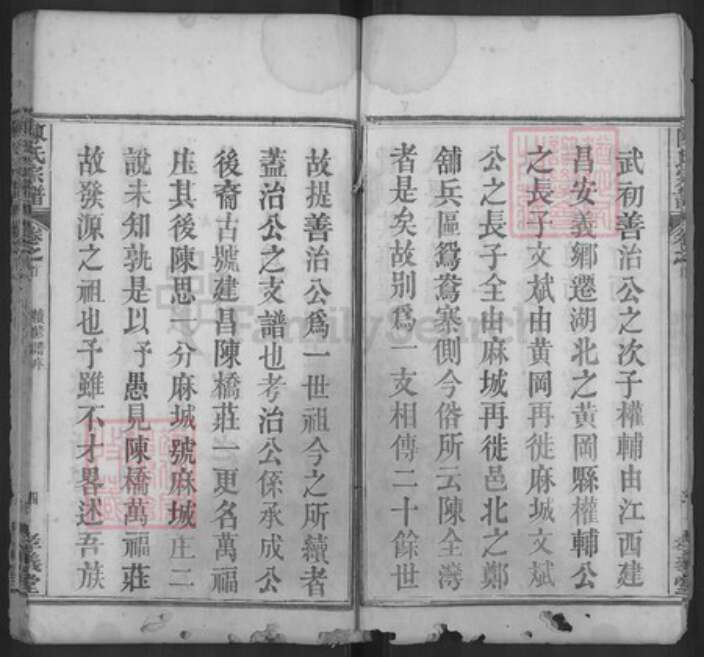 武初善治公之次子權輔由江西建
昌安義鄉遷湖北之黄岡縣權輔公
之長子文斌由黄岡再徙麻城文斌
公之長子全由麻城再徙邑北之鄭
舖兵區鴛鴦寨側今俗所云陳全灣
者是矣故别爲一支相傳二十餘世
故提善治公爲一世祖今之所續者
蓋治公之支譜也考治公係承成公
後裔古號建昌陳橋莊一更名萬福
庄其後陳思一分麻城號麻城庄二
說未知孰是以予愚見陳橋萬福莊
故發源之祖也予雖不才畧述吾族
陳氏宗譜
卷之首
四
孝義堂
FamilySearch